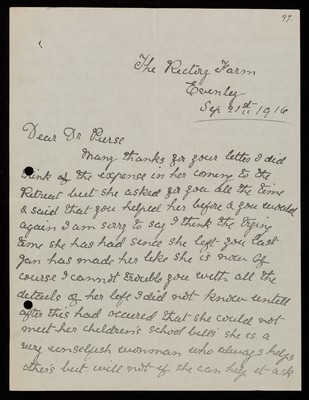 97.
The Rectory Farm
Evenley
Sep 21st 1916
Dear Dr Pierse
Many thanks for your letter I did
think of the expense in her coming to the
Retreat but she asked for you all the time
& said that you helped her before & you would
again I am sorry to say I think the trying
time she has had since she left you last
Jan has made her like she is now of
course I cannot trouble you with all the
details of her life I did not know untill
after this had occured that she could not
meet her children's school bills she is a
very unselfish wonman who always helps
others but will not if she can help it ask